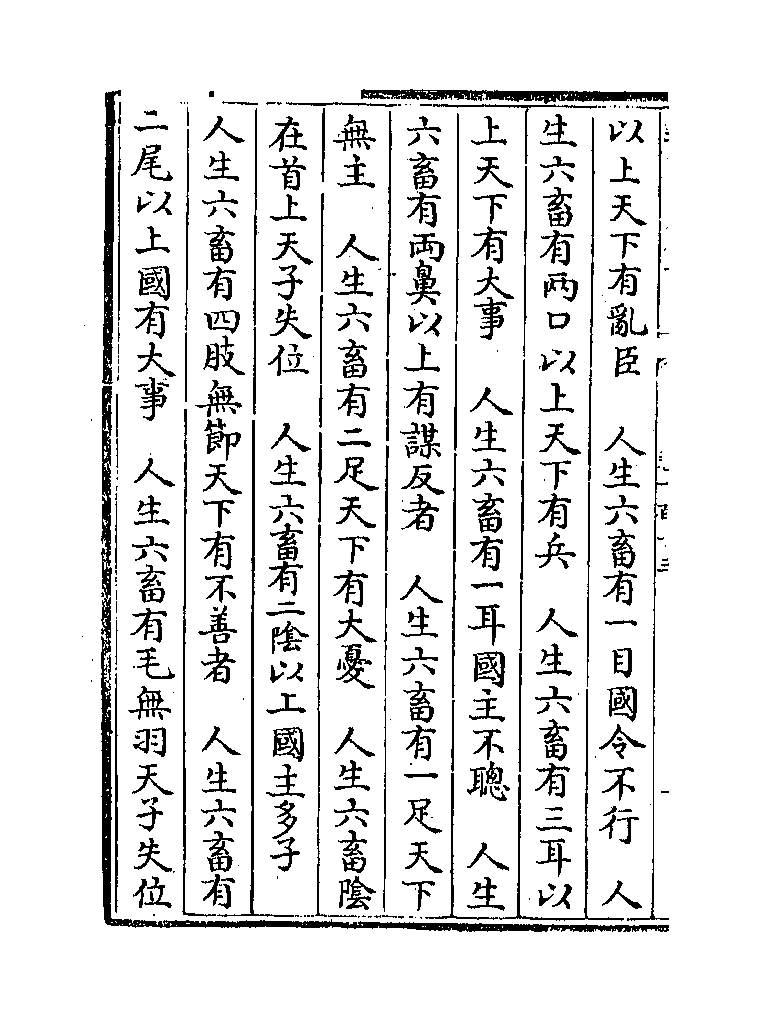 以上天下有亂臣　人生六畜有一目國令不行　人
生六畜有兩口以上天下有兵　人生六畜有三耳以
上天下有大事　人生六畜有一耳國主不聰　人生
六畜有兩鼻以上有謀反者　人生六畜有一足天下
無主　人生六畜有二足天下有大憂　人生六畜陰
在首上天子失位　人生六畜有二陰以上國主多子
人生六畜有四肢無節天下有不善者　人生六畜有
二尾以上國有大事　人生六畜有毛無羽天子失位